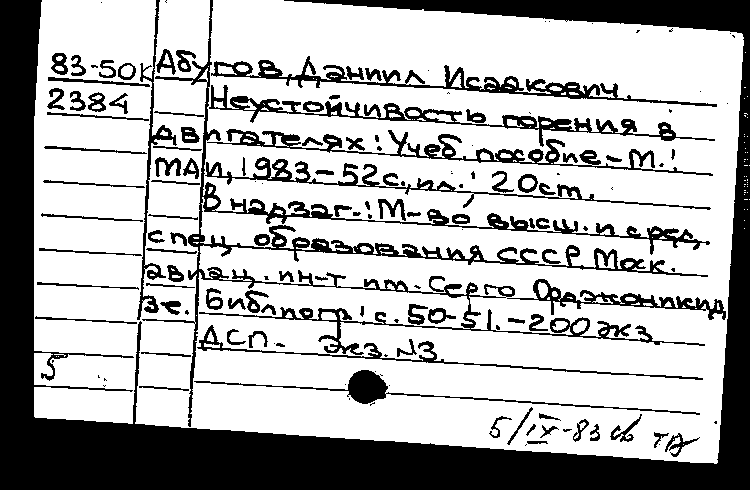 83-50к Абугов, Даниил Исаакович.
2384 Неустойчивость горения в
двигателях: Учеб. пособие.-М.:
МАИ, 1983.-52с., ил.; 20см.
В надзаг.: М-во высш. и сред.
спец. образования СССР. Моск.
авиац. ин-т им. Серго Орджоникид
зе. Библиогр: с. 50-51.-200 экз.
ДСП. Экз. N3.
5
5/IX-83